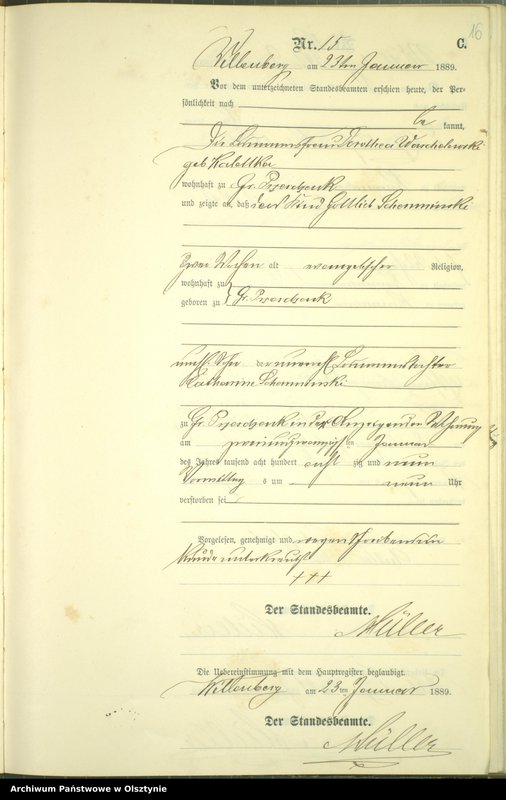 16
Nr. 15 C.
Willenberg am 23ten Januar 1889.
Vor dem unterzeichneten Standesbeamten erschien heute, der Per-
sönlichkeit nach
be kannt,
Die Losmannsfrau Dorothea
geb
wohnhaft zu Gr.
und zeigte an, daß das Kind Gottlieb Schemminski
zwei Wochen alt evangelischer Religion,
wohnhaft zu
geboren zu Gr.
unehl. Sohn der unverehl. Losmannstochter
Katharine Schemminski
zu Gr. in der Anzeigenden Behausung
am zweiundzwanzigsten Januar
des Jahres tausend acht hundert acht zig und neun
Vormittag s um neun Uhr
verstorben sei
Vorgelesen, genehmigt und wegen Schreibens un
kunde unterkreuzt
+++
Der Standesbeamte.
Müller
Die Uebereinstimmung mit dem Hauptregister beglaubigt.
Willenberg am 23ten Januar 1889.
Der Standesbeamte.
Müller
Archiwum Państwowe w Olsztynie